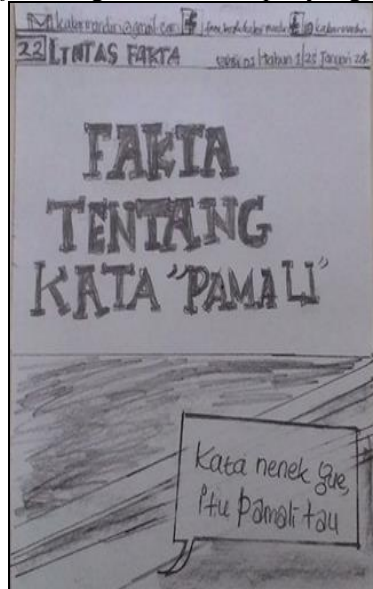 kabarmandiri@gmail.com
22 LINTAS FAKTA Edisi 01/Tahun 1/25 Januari
FAKTA
TENTANG
KATA "PAMALI"
Kata nenek gue,
itu pamali tau